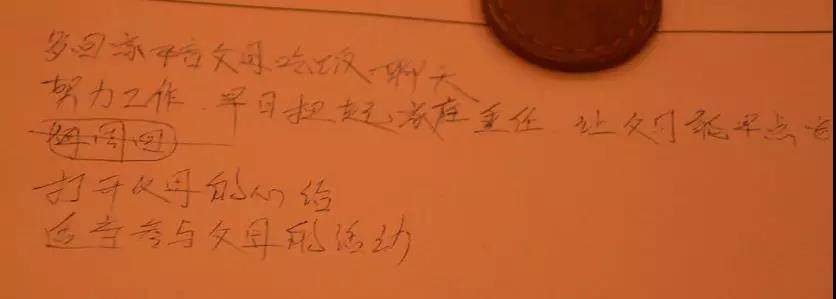 多回家陪父母吃饭、聊天
努力工作、早日担起家庭重任、让父母能早点
打开父母的心结
适当参与父母的活动